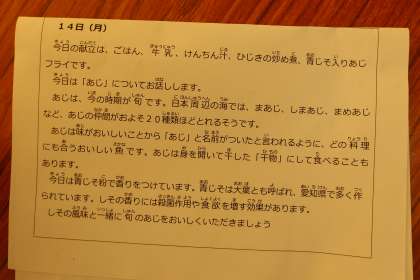 14日（月）
今日の献立は、ごはん、牛乳、けんちん汁、ひじきの炒め煮、青じそ入りあじ
フライです。
今日は「あじ」についてお話しします。
あじは、今の時期が旬です。日本周辺の海では、まあじ、しまあじ、まめあじ
など、あじの仲間がおよそ２０種類ほどとれるそうです。
あじは味がおいしいことから「あじ」と名前がついたと言われるように、どの料理
にも合うおいしい魚です。あじは身を開いて干した「干物」にして食べることも
あります。
今日は青じそ粉で香りをつけています。青じそは大葉とも呼ばれ、愛知県で多く作
られています。しその香りには殺菌作用や食欲を増す効果があります。
しその風味と一緒に旬のあじをおいしくいただきましょう